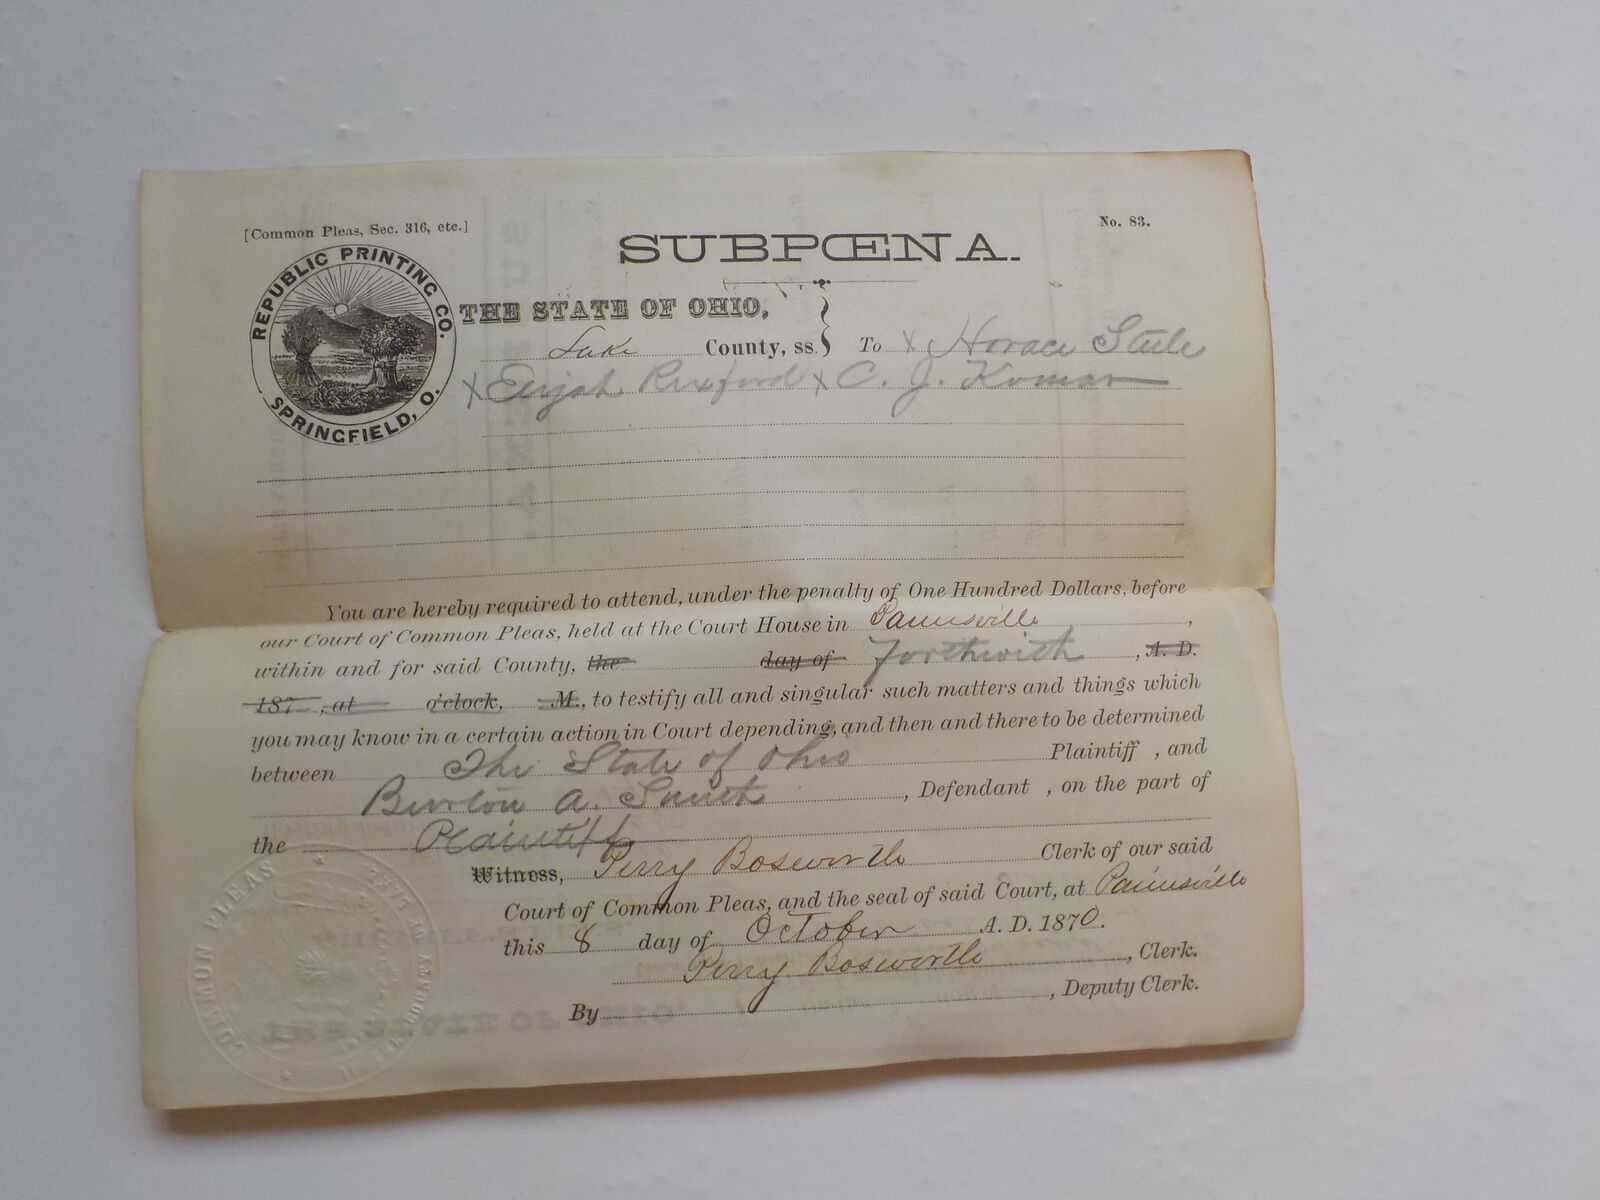 [Common Pleas, Sec. 316, etc.]
No. 83.
SUBPŒNA.
REPUBLIC PRINTING CO.
SPRINGFIELD, O.
THE STATE OF OHIO,
Lake County, ss. } To x Horace Steele
x Elijah Rexford x C. J.
You are hereby required to attend, under the penalty of One Hundred Dollars, before
our Court of Common Pleas, held at the Court House in Painesville,
within and for said County, the day of Forthwith, A. D.
187 , at o'clock, M., to testify all and singular such matters and things which
you may know in a certain action in Court depending, and then and there to be determined
between The State of Ohio Plaintiff , and
Burton A. Smith, Defendant , on the part of
the Plaintiff
Witness, Perry Bosworth Clerk of our said
Court of Common Pleas, and the seal of said Court, at Painesville
this 8 day of October A. D. 1870.
Perry Bosworth, Clerk.
By , Deputy Clerk.
COMMON PLEAS